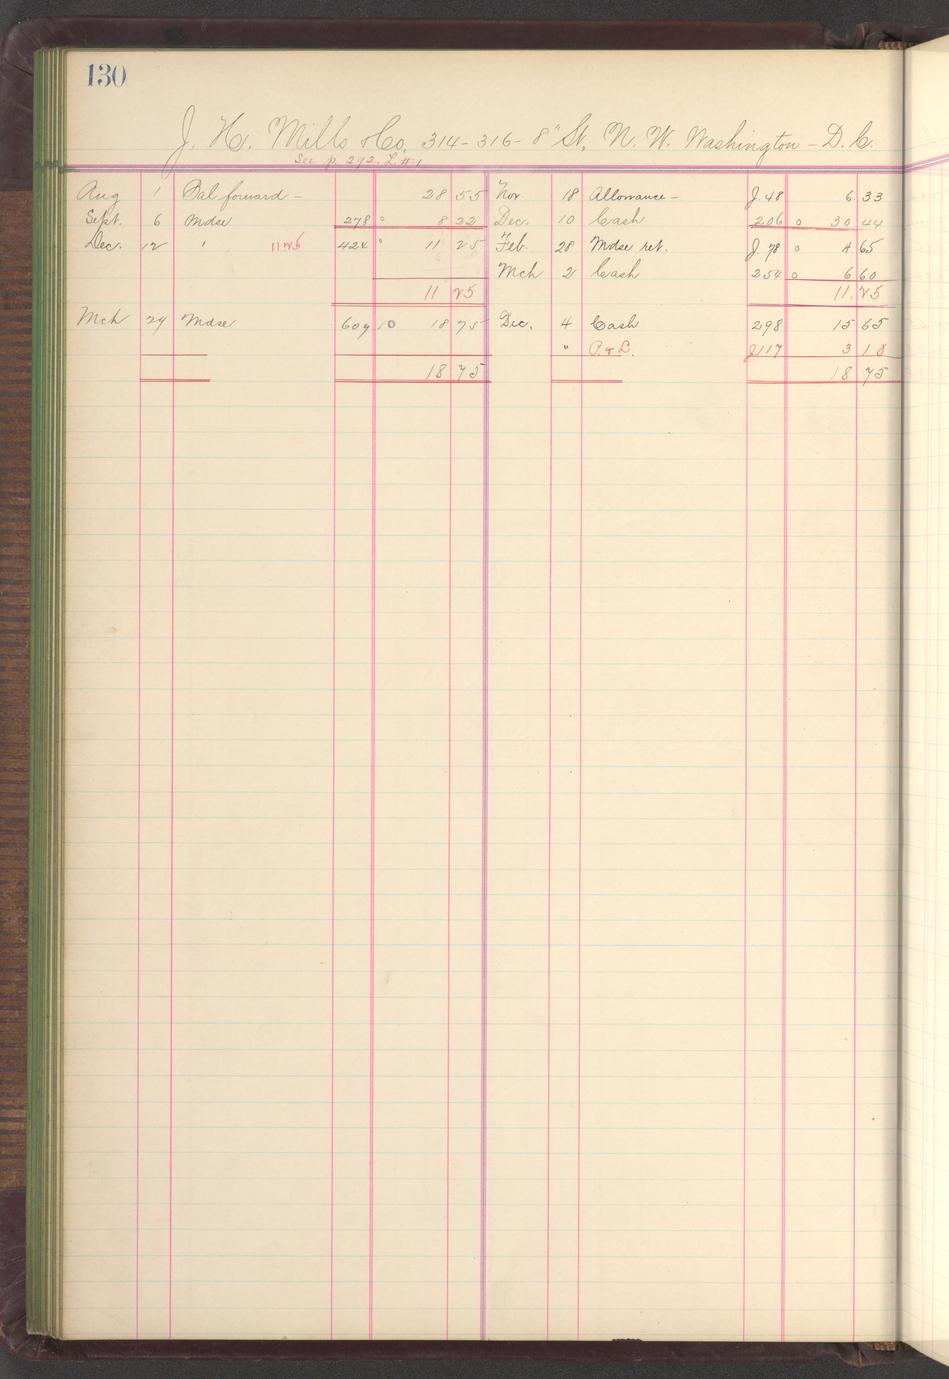 130
J. H. Mills & Co, 314-316-8" St, N. W. Washington - D. C.
See p. 292. L #1
Aug 1 Bal forward - 28 55 Nov. 18 Allowance - J. 48 6. 33
Sept. 6 Mdse 278 o 8 22 Dec. 10 Cash 206 o 30 44
Dec. 12 ' 11 25 424 o 11 25 Feb. 28 Mdse ret. J. 78 o 4 65
Mch 2 Cash 254 o 6 60
11 25 11. 25
Mch 29 Mdse 609 10 18 75 Dec. 4 Cash 298 15 65
" P & L. J117 3 10
18 75 18 75